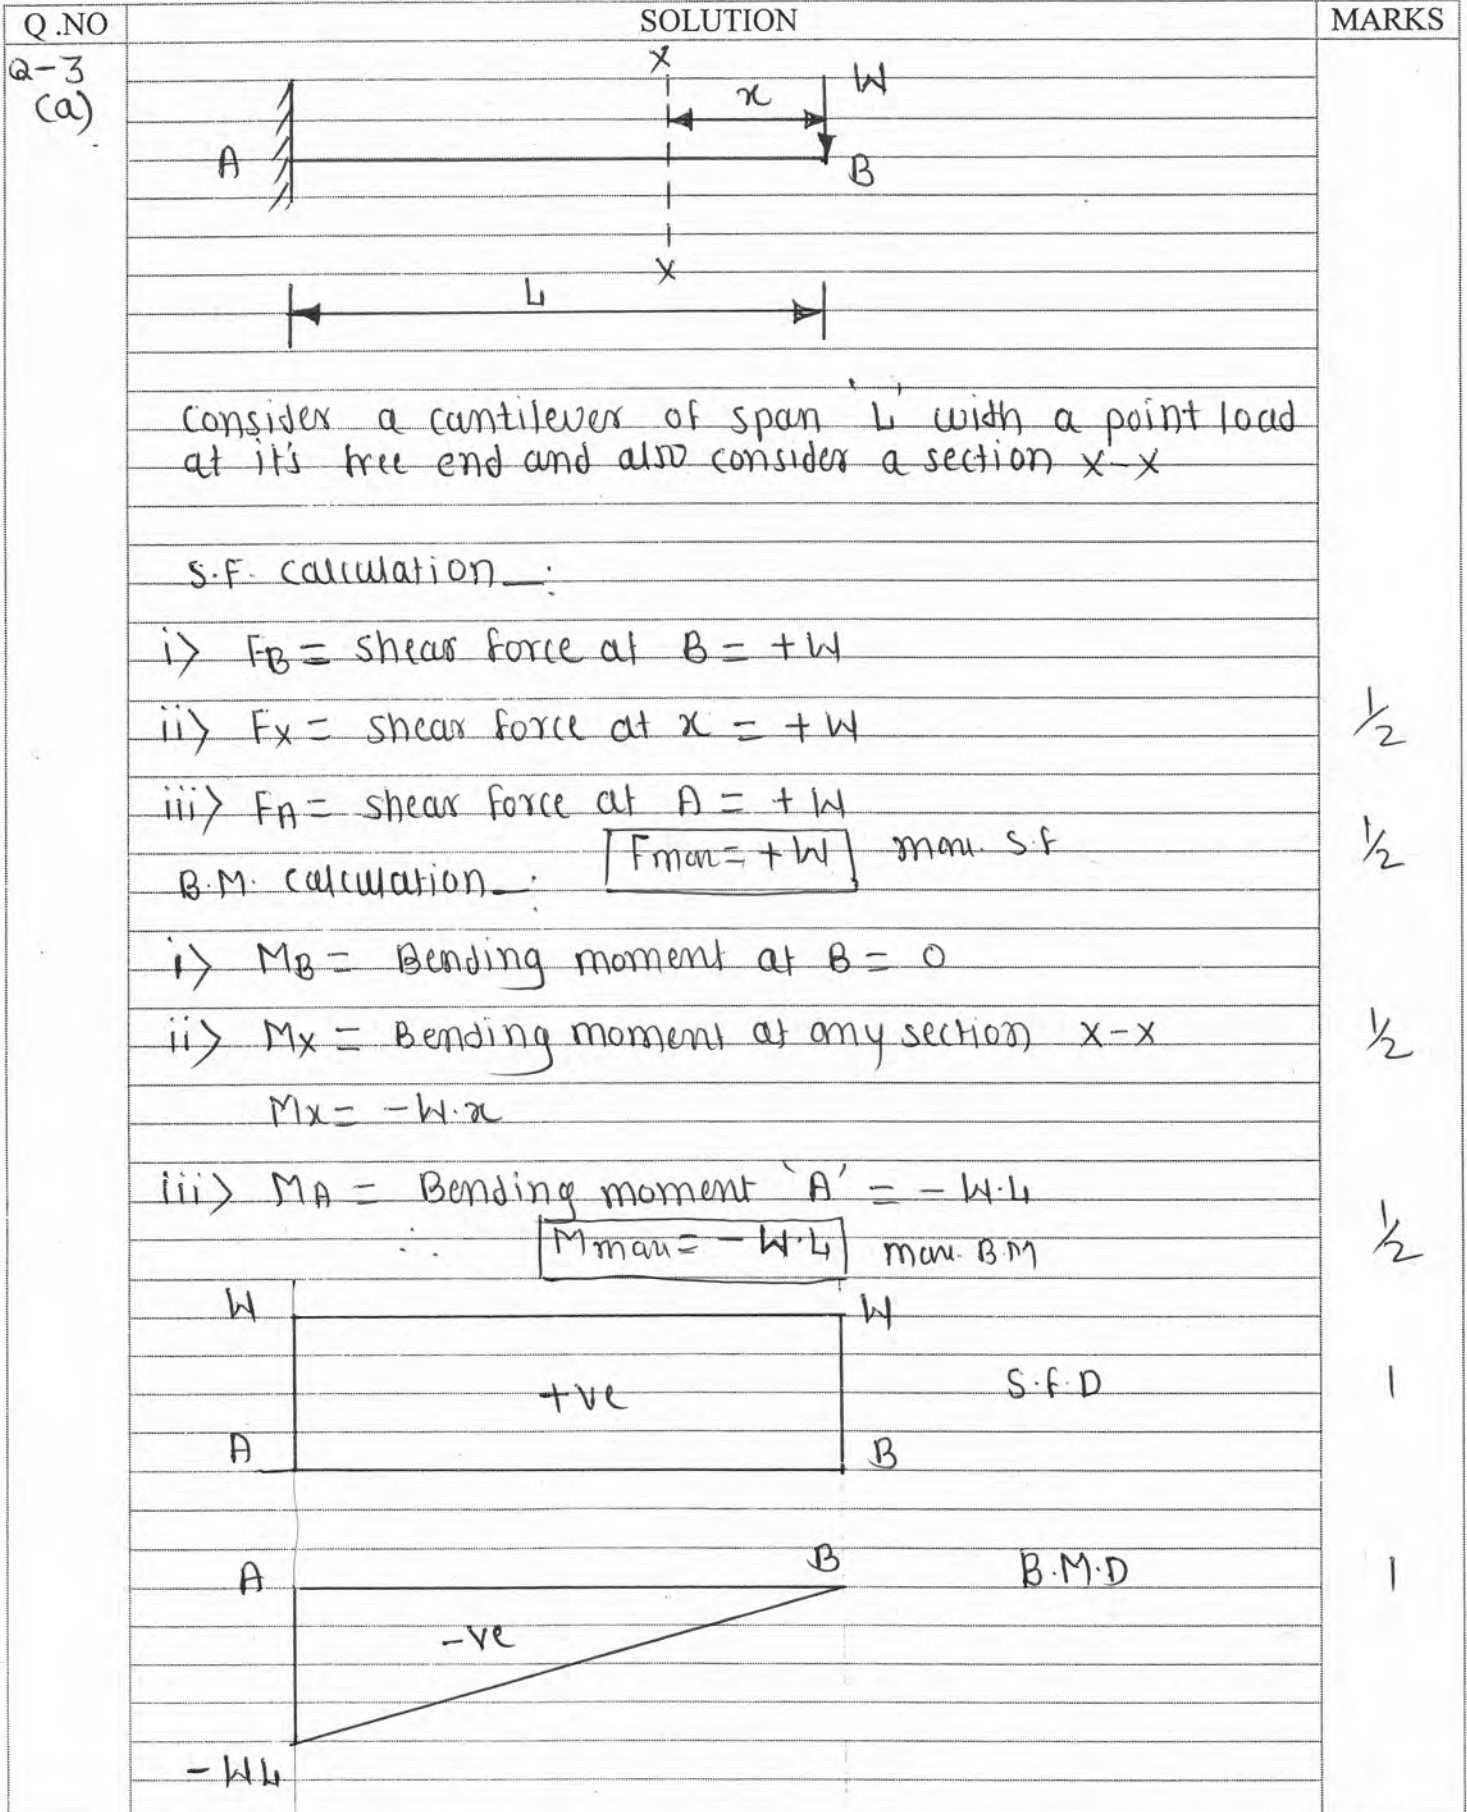 Q.NO SOLUTION MARKS
Q-3
(a)
X
x
W
A
B
X
L
Consider a cantilever of span 'L' with a point load
at it's free end and also consider a section x-x
S.F. calculation :
i> FB = shear force at B = +W
ii> Fx = shear force at x = +W 1/2
iii> FA = shear force at A = +W
Fmax = +W max. S.F 1/2
B.M. calculation :
i> MB = Bending moment at B = 0
ii> Mx = Bending moment at any section x-x 1/2
Mx = -W.x
iii> MA = Bending moment 'A' = - W.L
∴ Mmax = - W.L max. B.M 1/2
W W
+ve S.F.D 1
A B
A B B.M.D 1
-ve
- WL